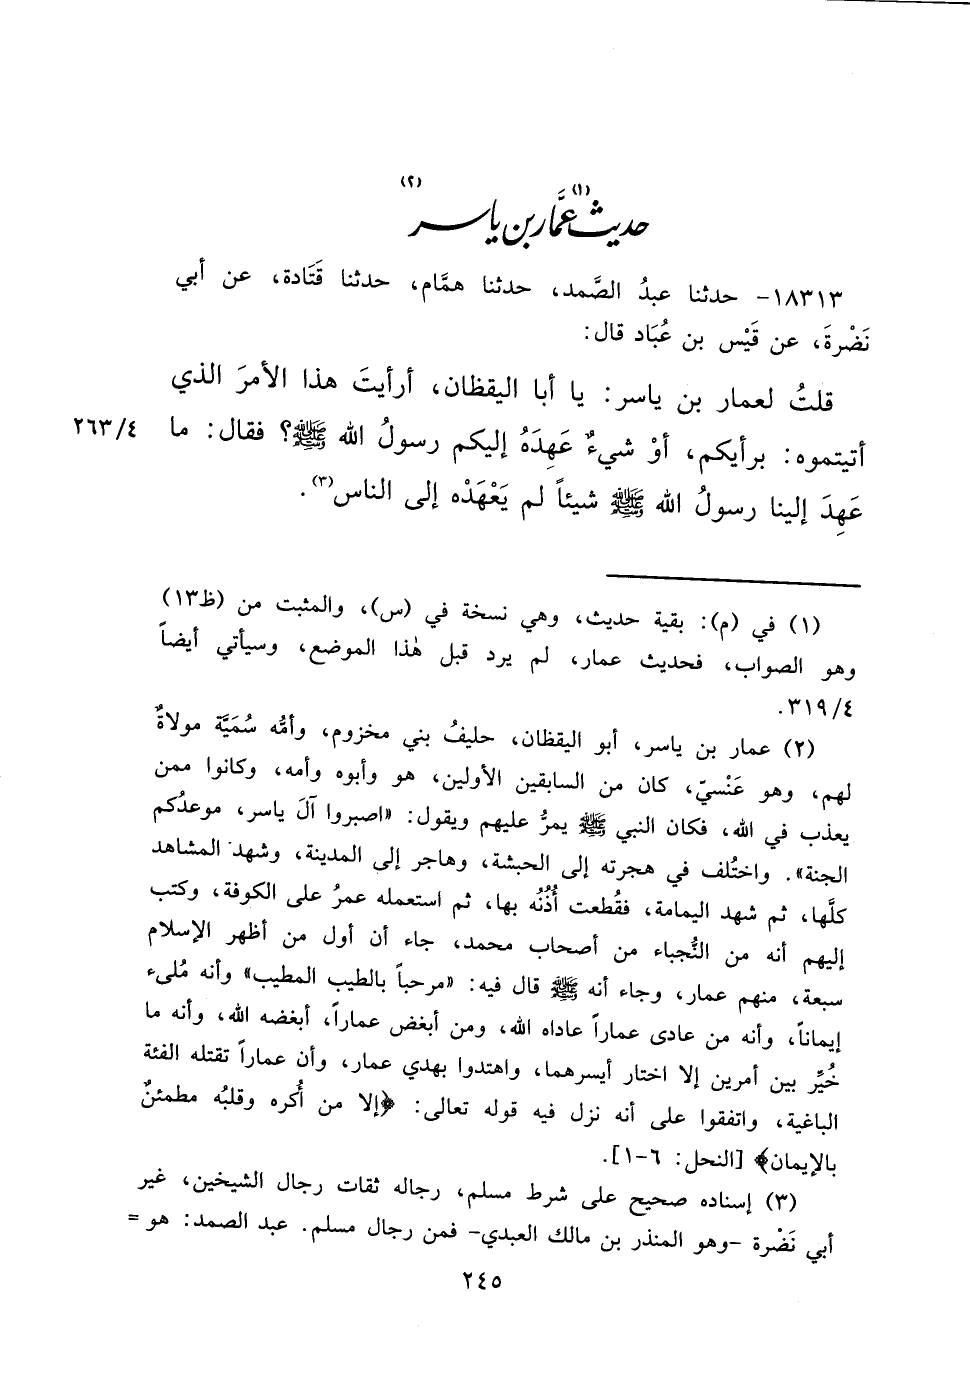 حديث(١) عمَّار بن ياسر(٢)
١٨٣١٣- حدثنا عبدُ الصَّمد، حدثنا همَّام، حدثنا قَتَادة، عن أبي
نَضْرةَ، عن قَيْس بن عُبَاد قال:
قلتُ لعمار بن ياسر: يا أبا اليقظان، أرأيتَ هذا الأمرَ الذي
أتيتموه: برأيكم، أوْ شيءٌ عَهِدَهُ إليكم رسولُ الله ﷺ؟ فقال: ما ٢٦٣/٤
عَهِدَ إلينا رسولُ الله ﷺ شيئاً لم يَعْهَدْه إلى الناس(٣).
(١) في (م): بقية حديث، وهي نسخة في (س)، والمثبت من (ظ١٣)
وهو الصواب، فحديث عمار، لم يرد قبل هٰذا الموضع، وسيأتي أيضاً
٣١٩/٤.
(٢) عمار بن ياسر، أبو اليقظان، حليفُ بني مخزوم، وأمُّه سُمَيَّة مولاةٌ
لهم، وهو عَنْسيّ، كان من السابقين الأولين، هو وأبوه وأمه، وكانوا ممن
يعذب في الله، فكان النبي ﷺ يمرُّ عليهم ويقول: «اصبروا آلَ ياسر، موعدُكم
الجنة». واختُلف في هجرته إلى الحبشة، وهاجر إلى المدينة، وشهد المشاهد
كلَّها، ثم شهد اليمامة، فقُطعت أُذُنُه بها، ثم استعمله عمرُ على الكوفة، وكتب
إليهم أنه من النُّجباء من أصحاب محمد، جاء أن أول من أظهر الإسلام
سبعة، منهم عمار، وجاء أنه ﷺ قال فيه: «مرحباً بالطيب المطيب» وأنه مُلىء
إيماناً، وأنه من عادى عماراً عاداه الله، ومن أبغض عماراً، أبغضه الله، وأنه ما
خُيِّر بين أمرين إلا اختار أيسرهما، واهتدوا بهدي عمار، وأن عماراً تقتله الفئة
الباغية، واتفقوا على أنه نزل فيه قوله تعالى: ﴿إلا من أُكره وقلبُه مطمئنٌ
بالإيمان﴾ [النحل: ٦-١].
(٣) إسناده صحيح على شرط مسلم، رجاله ثقات رجال الشيخين، غير
أبي نَضْرة -وهو المنذر بن مالك العبدي- فمن رجال مسلم. عبد الصمد: هو =
٢٤٥